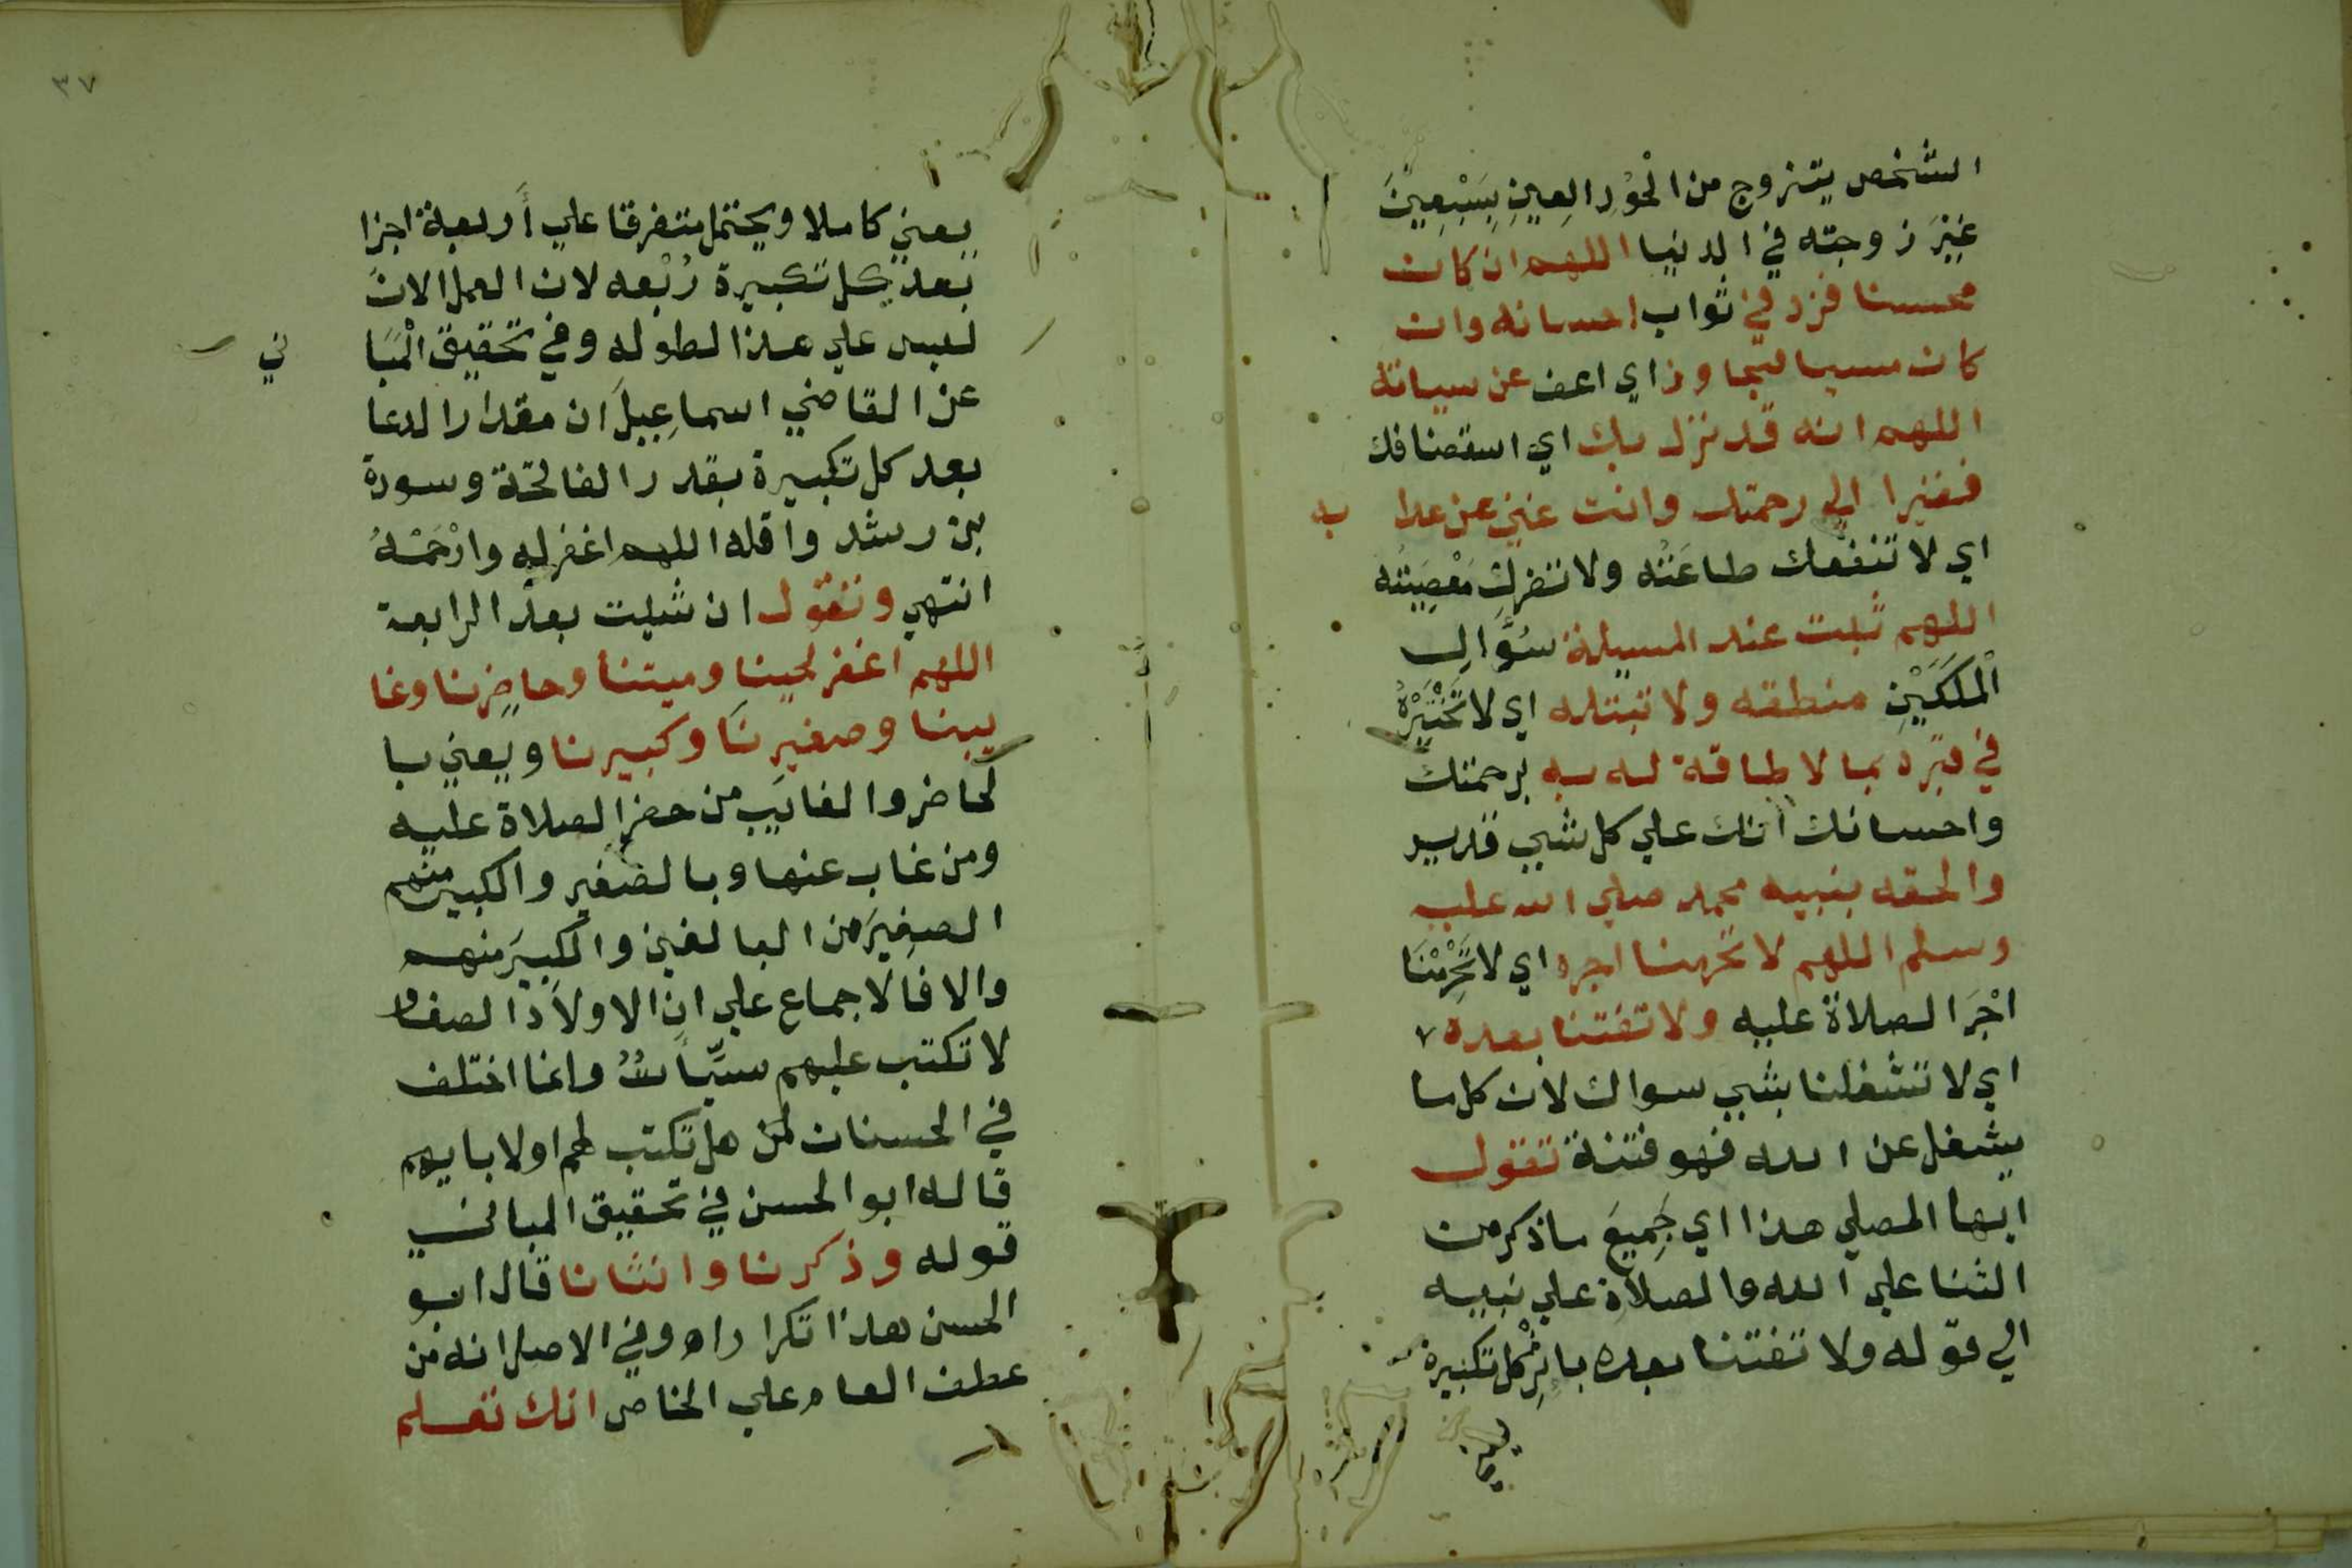 الشخص يتزوج من الْحُورِ الِعينِ بِسَبْعِينَ
غيْرَ زوجته في الدنيا اللهم ان كان
محسنا فزد في ثواب احسانه وان
كان مسيا فتجاوز اي اعف عن سياته
اللهم انه قد نزل بك اي استضافك
فقيرا الي رحمتك وانت غني عن عذا به
اي لا تنفعك طاعَتُه ولا تضرك مَعْصِيَتُه
اللهم ثبت عند المسيلة سُؤَالِ
الْمَلَكَيْنِ منطقه ولا تبتله اي لا تَخْتَبِرْهُ
في قبره بما لا طاقة له به برحمتك
واحسانك انك علي كل شيي قدير
والحقه بنبيه محمد صلي الله عليه
وسلم اللهم لا تحرمنا اجره اي لا تَحْرِمْنَا
اجْرَ الصلاة عليه ولا تفتنا بعده
اي لا تشغلنا بشيي سواك لان كل ما
يشغل عن الله فهو فتنة تقول
ايها المصلي هذا اي جَمِيعَ ما ذكر من
الثنا علي الله والصلاة علي نبيه
الي قوله ولا تفتنا بعده باثر كل تكبيرة
يعني
٣٧
يعني كاملا ويحتمل متفرقا علي أربعة اجزا
بعد كل تكبيرة رُبْعه لان العمل الان
ليس علي هذا لطوله وفي تحقيق الْمَبَا ني
عن القاضي اسماعِيلَ ان مقدار الدعا
بعد كل تكبيرة بقدر الفاتحة وسورة
بن رشد واقله اللهم اغفر له وارْحَمْهُ
انتهي وتقول ان شيت بعد الرابعة
اللهم اغفر لحينا وميتنا وحاضرنا وغا
يبنا وصغيرنا وكبيرنا ويعني با
لحاضر والغايب من حضر الصلاة عليه
ومن غاب عنها وبالصغير والكبير منهم
الصغيرَ من البالغين والكبيرَ منهم
والا فالاجماع علي ان الاولاد الصغار
لا تكتب عليهم سيِّأتٌ وانما اختلف
في الحسنات لمن هل تكتب لهم اولابايهم
قاله ابو الحسن في تحقيق المباني
قوله وذكرنا وانثانا قال ابو
الحسن هذا تكرار اه وفي الاصل انه من
عطف العام علي الخاص انك تعلم